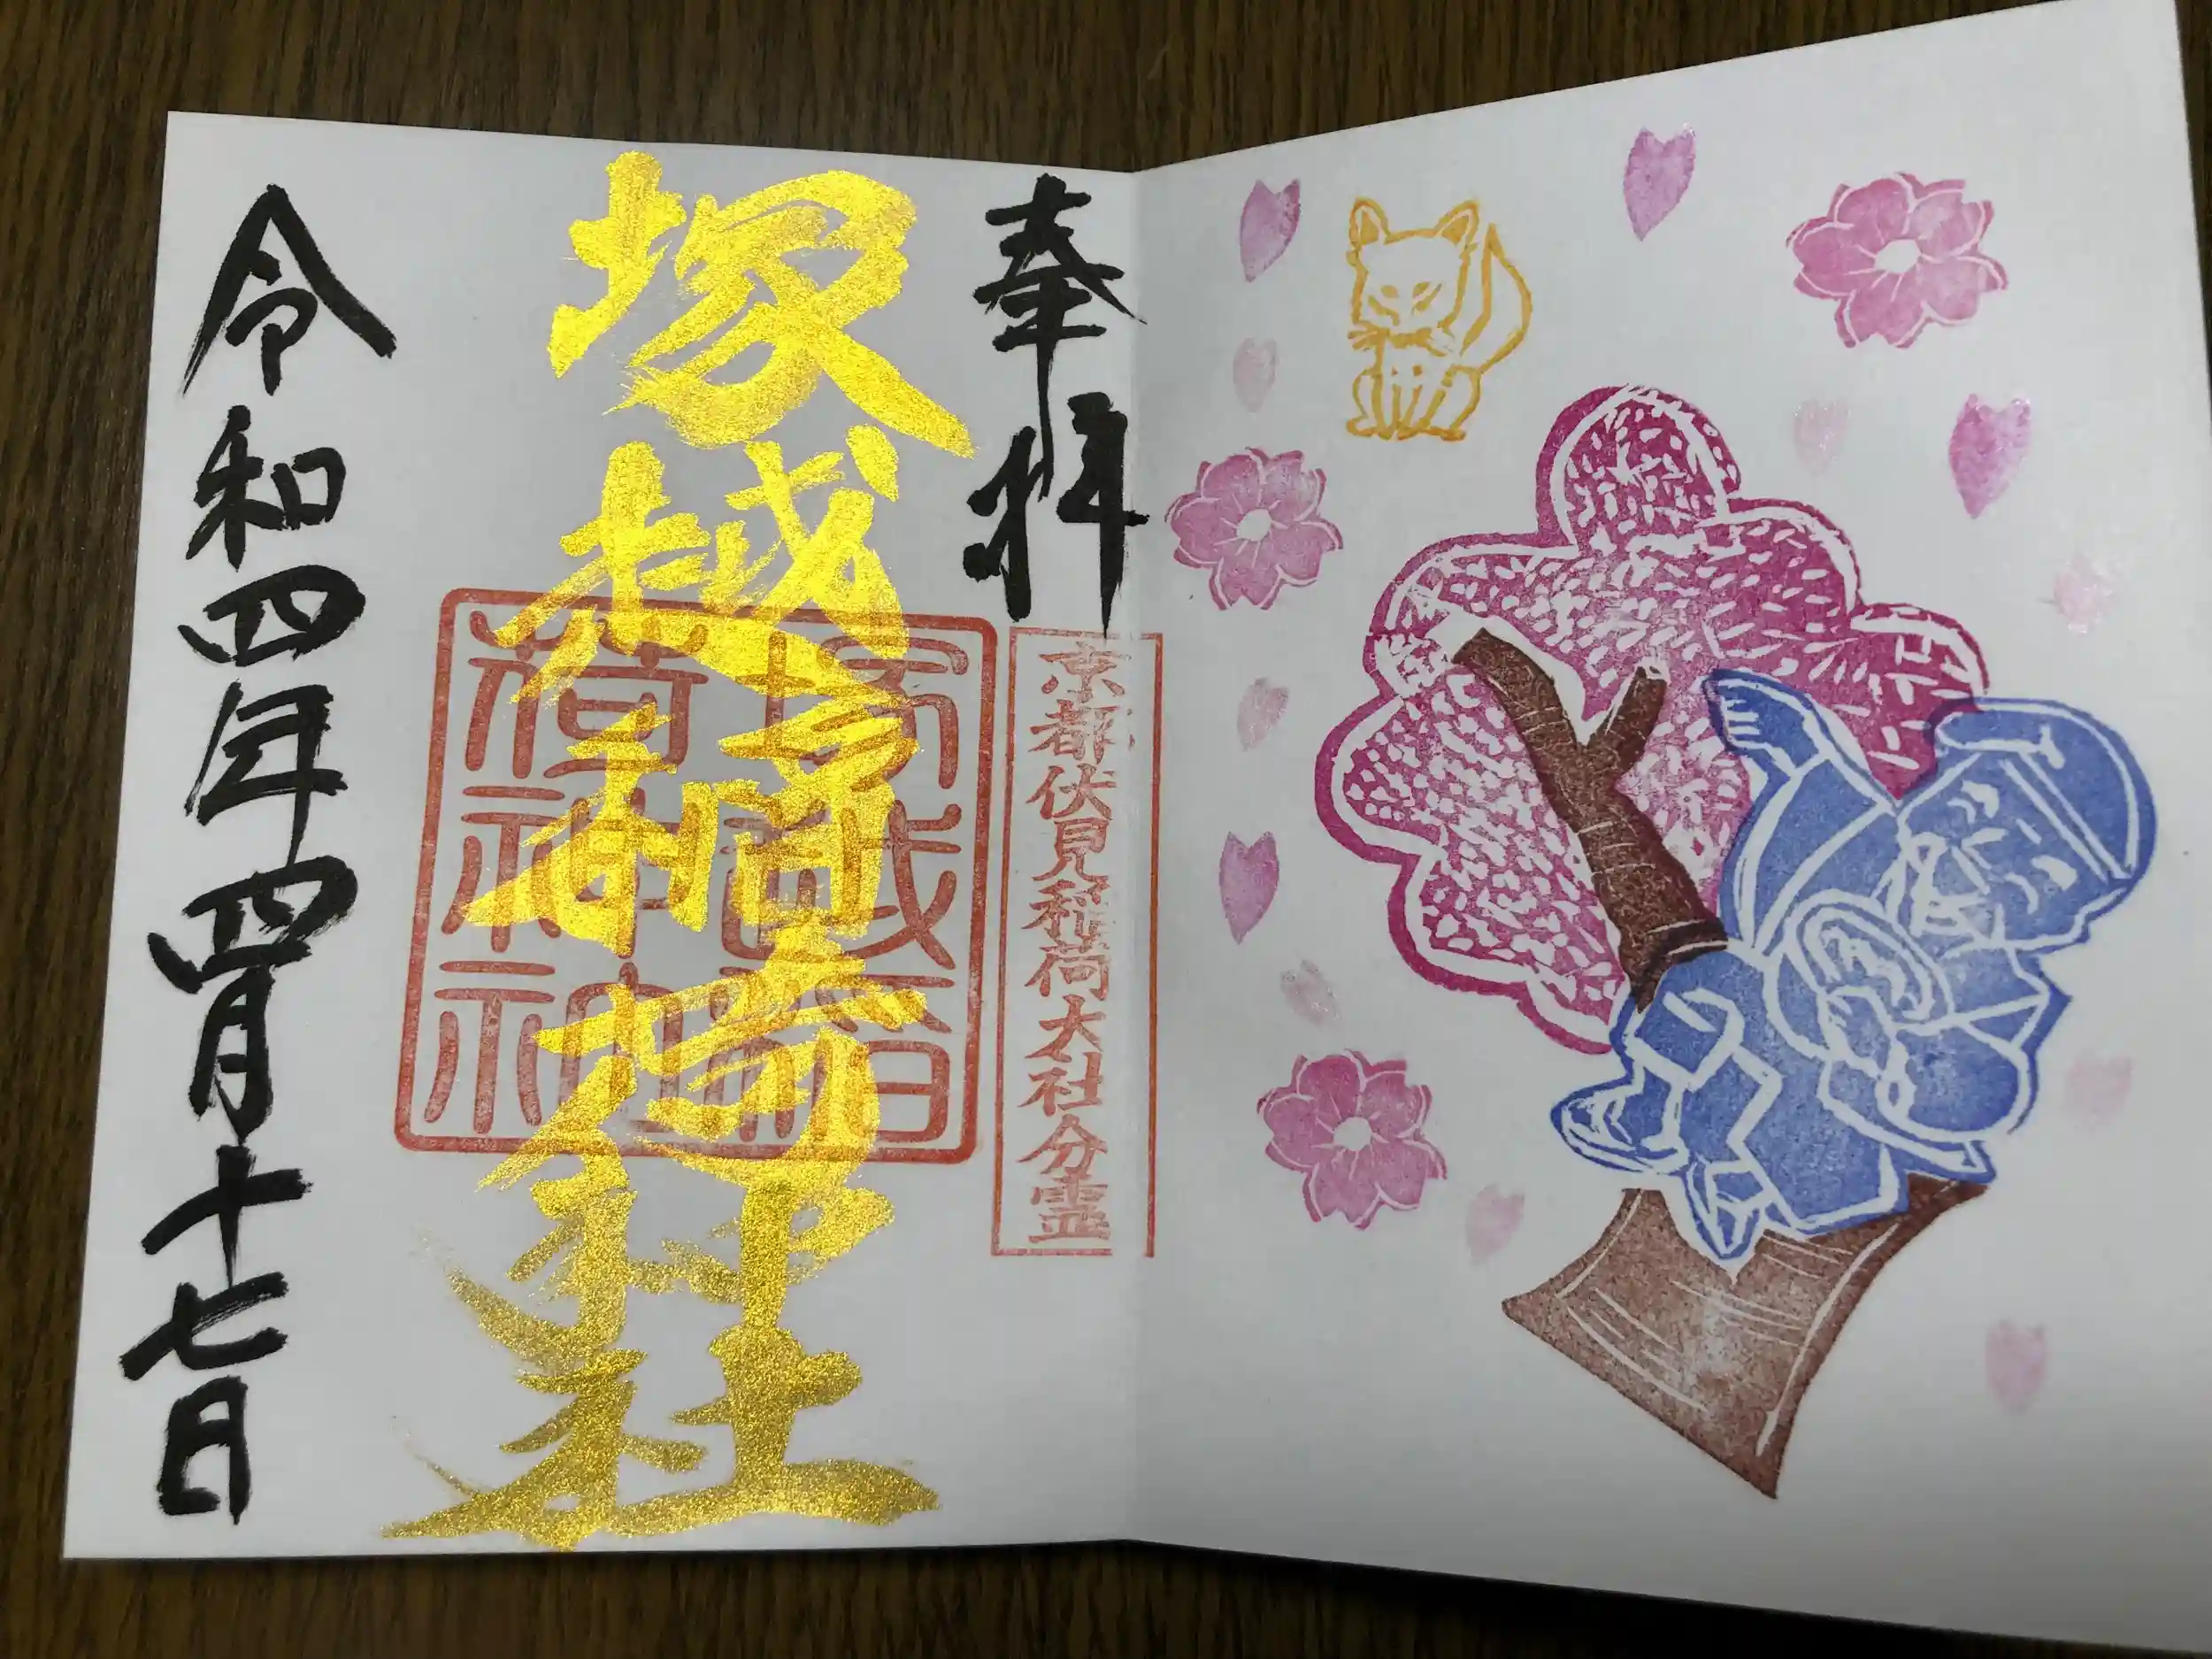 奉拝
京都伏見稲荷大社分霊
塚越
神社
塚越稲荷神社
令和四年四月十七日